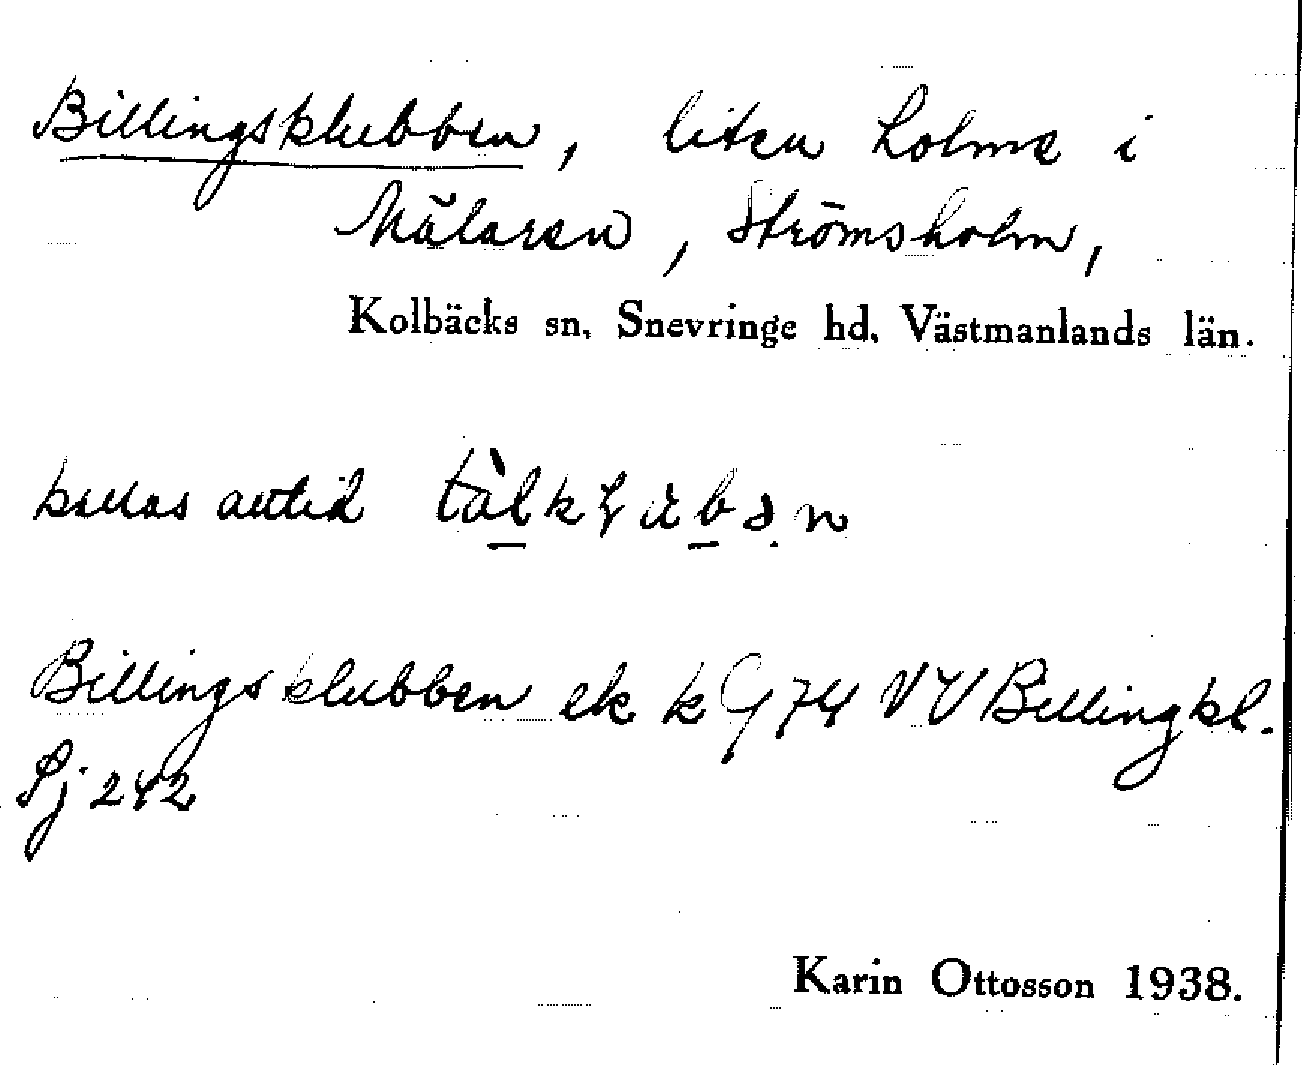 Billingsklubben, liten holme i
Mälaren, Strömsholm,
Kolbäcks sn, Snevringe hd, Västmanlands län.
kallas alltid
Billingsklubben ek k G 74 VV Billingkl.
Sj 242
Karin Ottosson 1938.